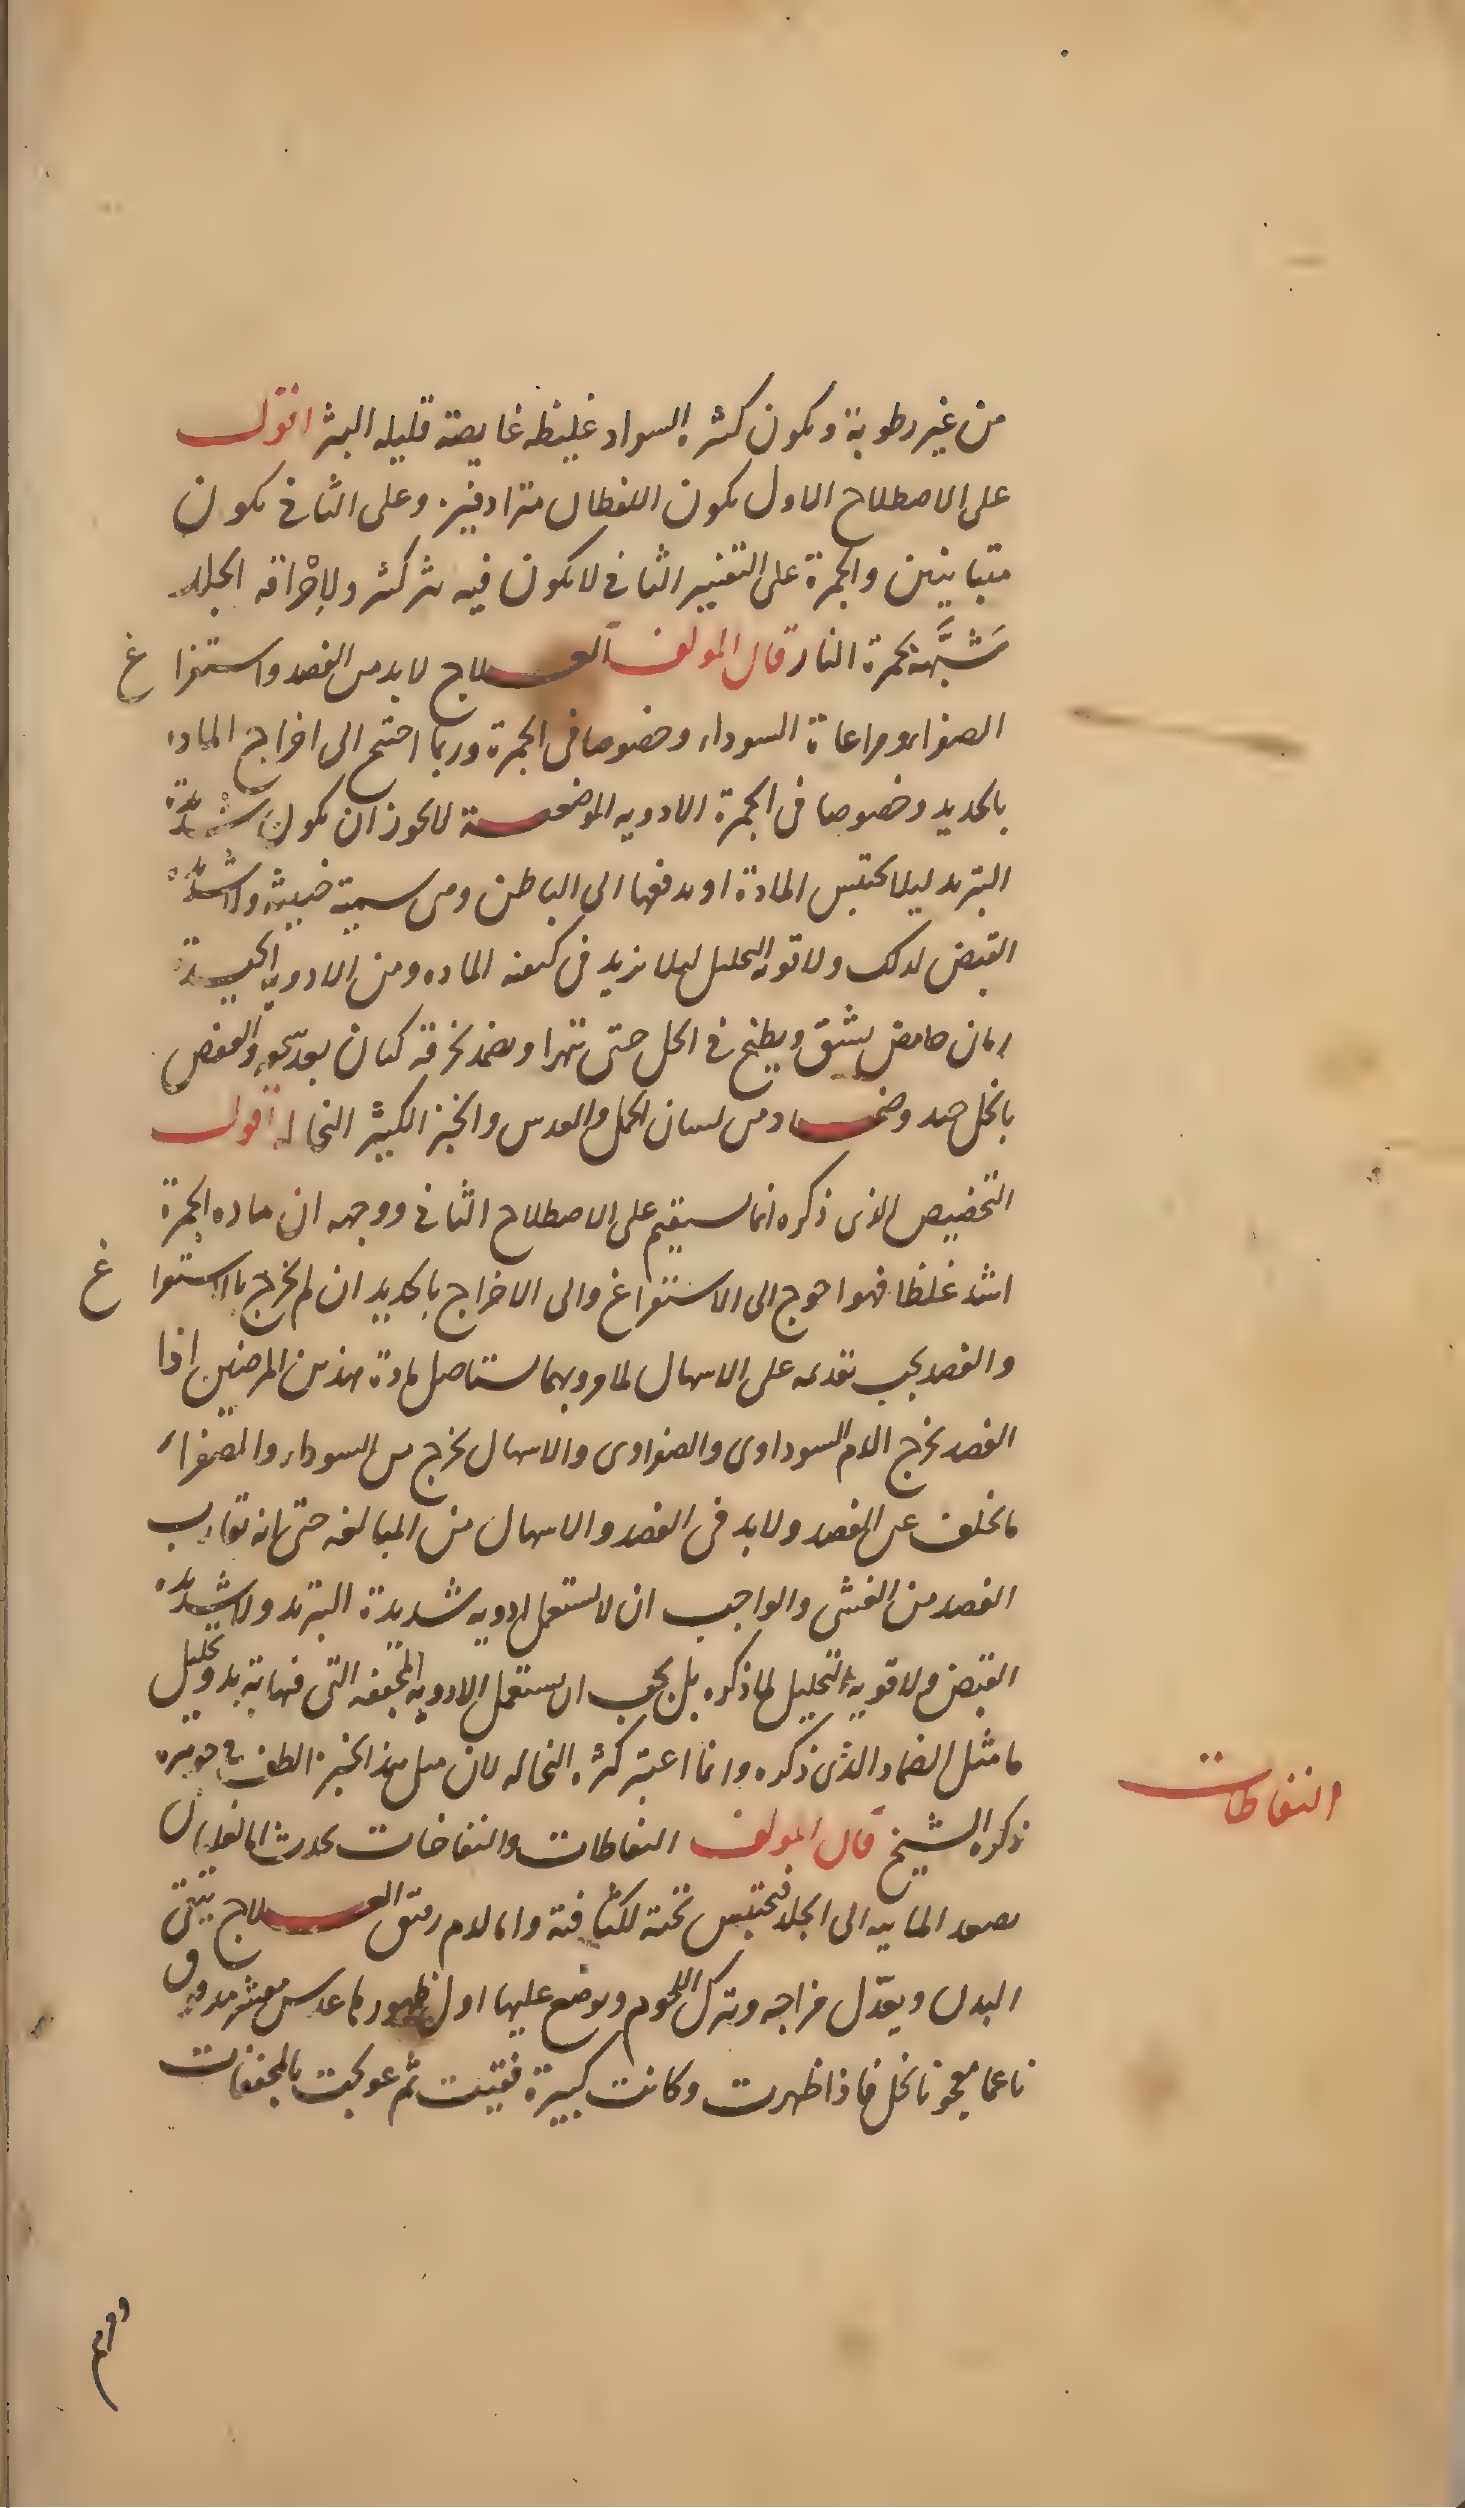 من غير رطوبة ويكون كثيرة السواد غليظه غايصة قليله البثر اقول
على الاصطلاح الاول يكون اللفظان مترادفين وعلى الثانى يكون
متباينين والجمرة على التفسير الثانى لا يكون فيه بثر كثير ولإحراقه الجلد
شَبَّهه بجمرة النار قال المولف العلاج لا بد من الفصد واستفراغ
الصفراء ومراعاة السوداء وخصوصا فى الجمرة وربما احتيج الى اخراج الماده
بالحديد وخصوصا فى الجمرة الادويه الموضعية لا يجوز ان يكون شديدة
التبريد ليلا يحتبس المادة او يدفعها الى الباطن ومن سمية خبيثة ولا شديدة
القبض لذلك ولا قوية التحليل ليلا يزيد فى كيفية الماده ومن الادوية الجيدة
رمان حامض يشق ويطبخ فى الخل حتى يتهرا ويضمد بخرقة كتان بعد سحقه والعفص
بالخل جيد وضماد من لسان الحمل والعدس والخبز الكثير النخاله اقول
التخصيص الذى ذكره انما يستقيم على الاصطلاح الثانى ووجهه ان ماده الجمرة
اشد غلظا فهو احوج الى الاستفراغ والى الاخراج بالحديد ان لم يخرج بالاستفراغ
والفصد يجب تقديمه على الاسهال لما مر وبهما يستاصل مادة هذين المرضين اذا
الفصد يخرج الدم السوداوى والصفراوى والاسهال يخرج من السوداء والصفراء
ما تخلف عن الفصد ولا بد فى الفصد والاسهال من المبالغه حتى انه يقارب
الفصد من الغشى والواجب ان لا يستعمل ادويه شديدة التبريد ولا شديدة
القبض ولا قوية التحليل لما ذكره بل يجب ان يستعمل الادوية المجففه التى فيها تبريد وتحليل
ما مثل الضماد الذى ذكره وانما اعتبر كثرة النخاله لان مثل هذا الخبز الطف فى جوهره
ذكره الشيخ قال المولف النفاطات والنفاخات يحدث اما لغليان
يصعد المايية الى الجلد فتحتبس تحته لكثافته واما لدم رقيق العلاج ينقى
البدن ويعدّل مزاجه ويترك اللحوم ويوضع عليها اول ظهورها عدس مقشر مدقوق
ناعما معجونا بخل فاذا ظهرت وكانت كبيرة فقيت ثم عولجت بالمجففات
النفاطات